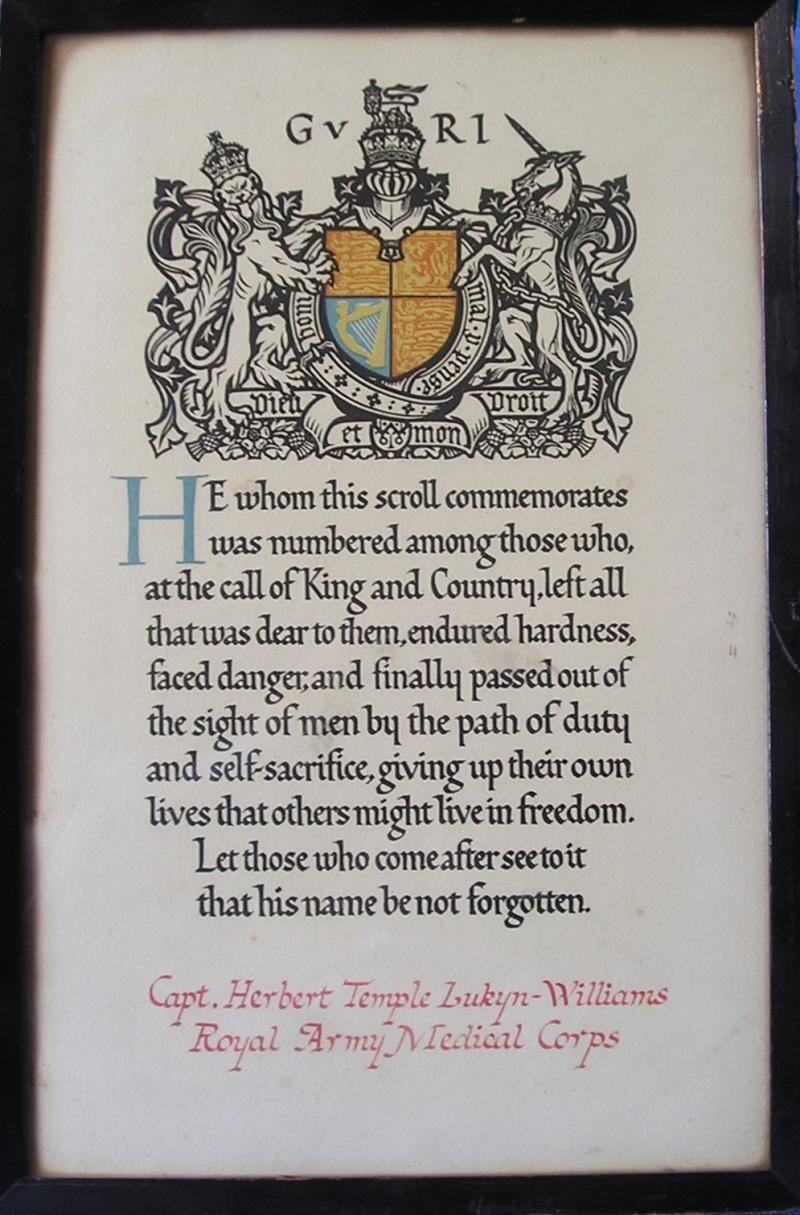 G V R I
Honi
mal·y·pense
Dieu
Droit
et mon
HE whom this scroll commemorates
was numbered among those who,
at the call of King and Country, left all
that was dear to them, endured hardness,
faced danger, and finally passed out of
the sight of men by the path of duty
and self-sacrifice, giving up their own
lives that others might live in freedom.
Let those who come after see to it
that his name be not forgotten.
Capt. Herbert Temple Lukyn-Williams
Royal Army Medical Corps